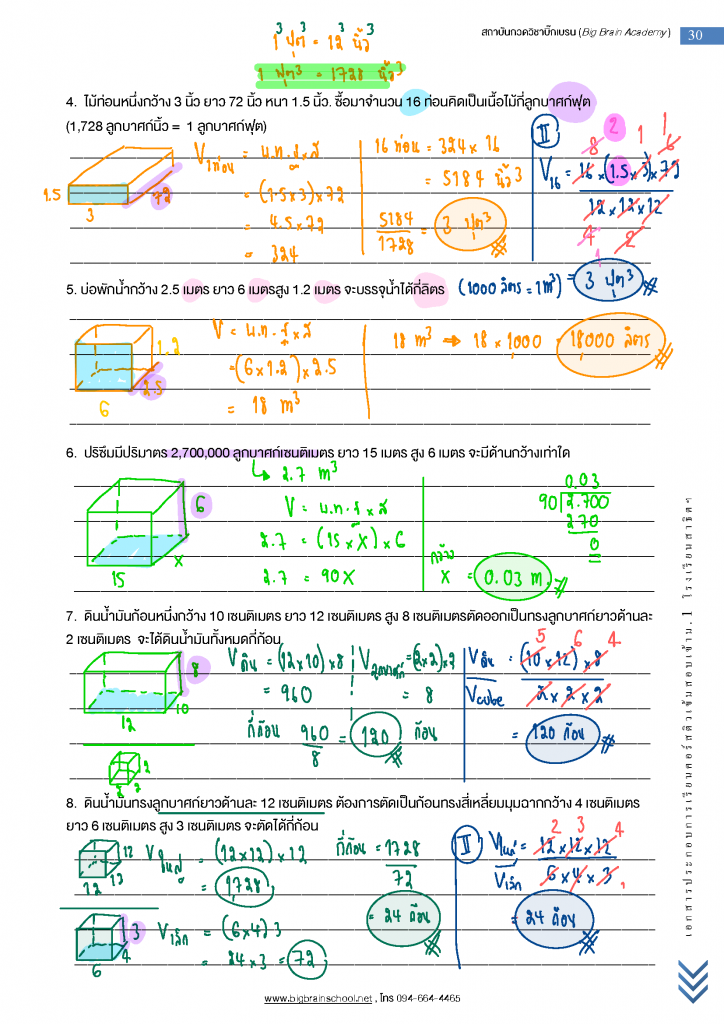 สถาบันกวดวิชาบิ๊กเบรน (Big Brain Academy)
30
1³ ฟุต³ = 12³ นิ้ว³
1 ฟุต³ = 1728 นิ้ว³
4. ไม้ท่อนหนึ่งกว้าง 3 นิ้ว ยาว 72 นิ้ว หนา 1.5 นิ้ว. ซื้อมาจำนวน 16 ท่อนคิดเป็นเนื้อไม้กี่ลูกบาศก์ฟุต
(1,728 ลูกบาศก์นิ้ว = 1 ลูกบาศก์ฟุต)
1.5
3
72
V1ท่อน = พ.ท.ฐ×ส
= (1.5×3)×72
= 4.5×72
= 324
16 ท่อน = 324×16
= 5184 นิ้ว³
5184/1728 = 3 ฟุต³
II
8 2 1 1 6
V16 = 16×(1.5×3)×72
12×12×12
4 2
1
= 3 ฟุต³
5. บ่อพักน้ำกว้าง 2.5 เมตร ยาว 6 เมตรสูง 1.2 เมตร จะบรรจุน้ำได้กี่ลิตร (1000 ลิตร = 1m³)
1.2
2.5
6
V = พ.ท.ฐ×ส
= (6×1.2)×2.5
= 18 m³
18 m³ → 18×1,000 = 18,000 ลิตร
6. ปริซึมมีปริมาตร 2,700,000 ลูกบาศก์เซนติเมตร ยาว 15 เมตร สูง 6 เมตร จะมีด้านกว้างเท่าใด
→ 2.7 m³
6
x
15
V = พ.ท.ฐ×ส
2.7 = (15×X)×6
2.7 = 90X
0.03
90 2.700
2.70
0
กว้าง
X = 0.03 m.
7. ดินน้ำมันก้อนหนึ่งกว้าง 10 เซนติเมตร ยาว 12 เซนติเมตร สูง 8 เซนติเมตรตัดออกเป็นทรงลูกบาศก์ยาวด้านละ
2 เซนติเมตร จะได้ดินน้ำมันทั้งหมดกี่ก้อน
8
10
12
2
2 2
Vดิน = (12×10)×8
= 960
Vลูกบาศก์ = (2×2)×2
= 8
กี่ก้อน 960/8 = 120 ก้อน
5 6 4
Vดิน = (10×12)×8
Vcube 2×2×2
= 120 ก้อน
8. ดินน้ำมันทรงลูกบาศก์ยาวด้านละ 12 เซนติเมตร ต้องการตัดเป็นก้อนทรงสี่เหลี่ยมมุมฉากกว้าง 4 เซนติเมตร
ยาว 6 เซนติเมตร สูง 3 เซนติเมตร จะตัดได้กี่ก้อน
12
12 12
Vใหญ่ = (12×12)×12
= 1728
กี่ก้อน = 1728
72
= 24 ก้อน
3
4
6
Vเล็ก = (6×4)3
= 24×3 = 72
II
2 3 4
Vใหญ่ = 12×12×12
Vเล็ก 6×4×3
= 24 ก้อน
เอกสารประกอบการเรียนคอร์สติวเข้มสอบเข้าม.1 โรงเรียนสาธิตฯ
www.bigbrainschool.net , โทร 094-664-4465